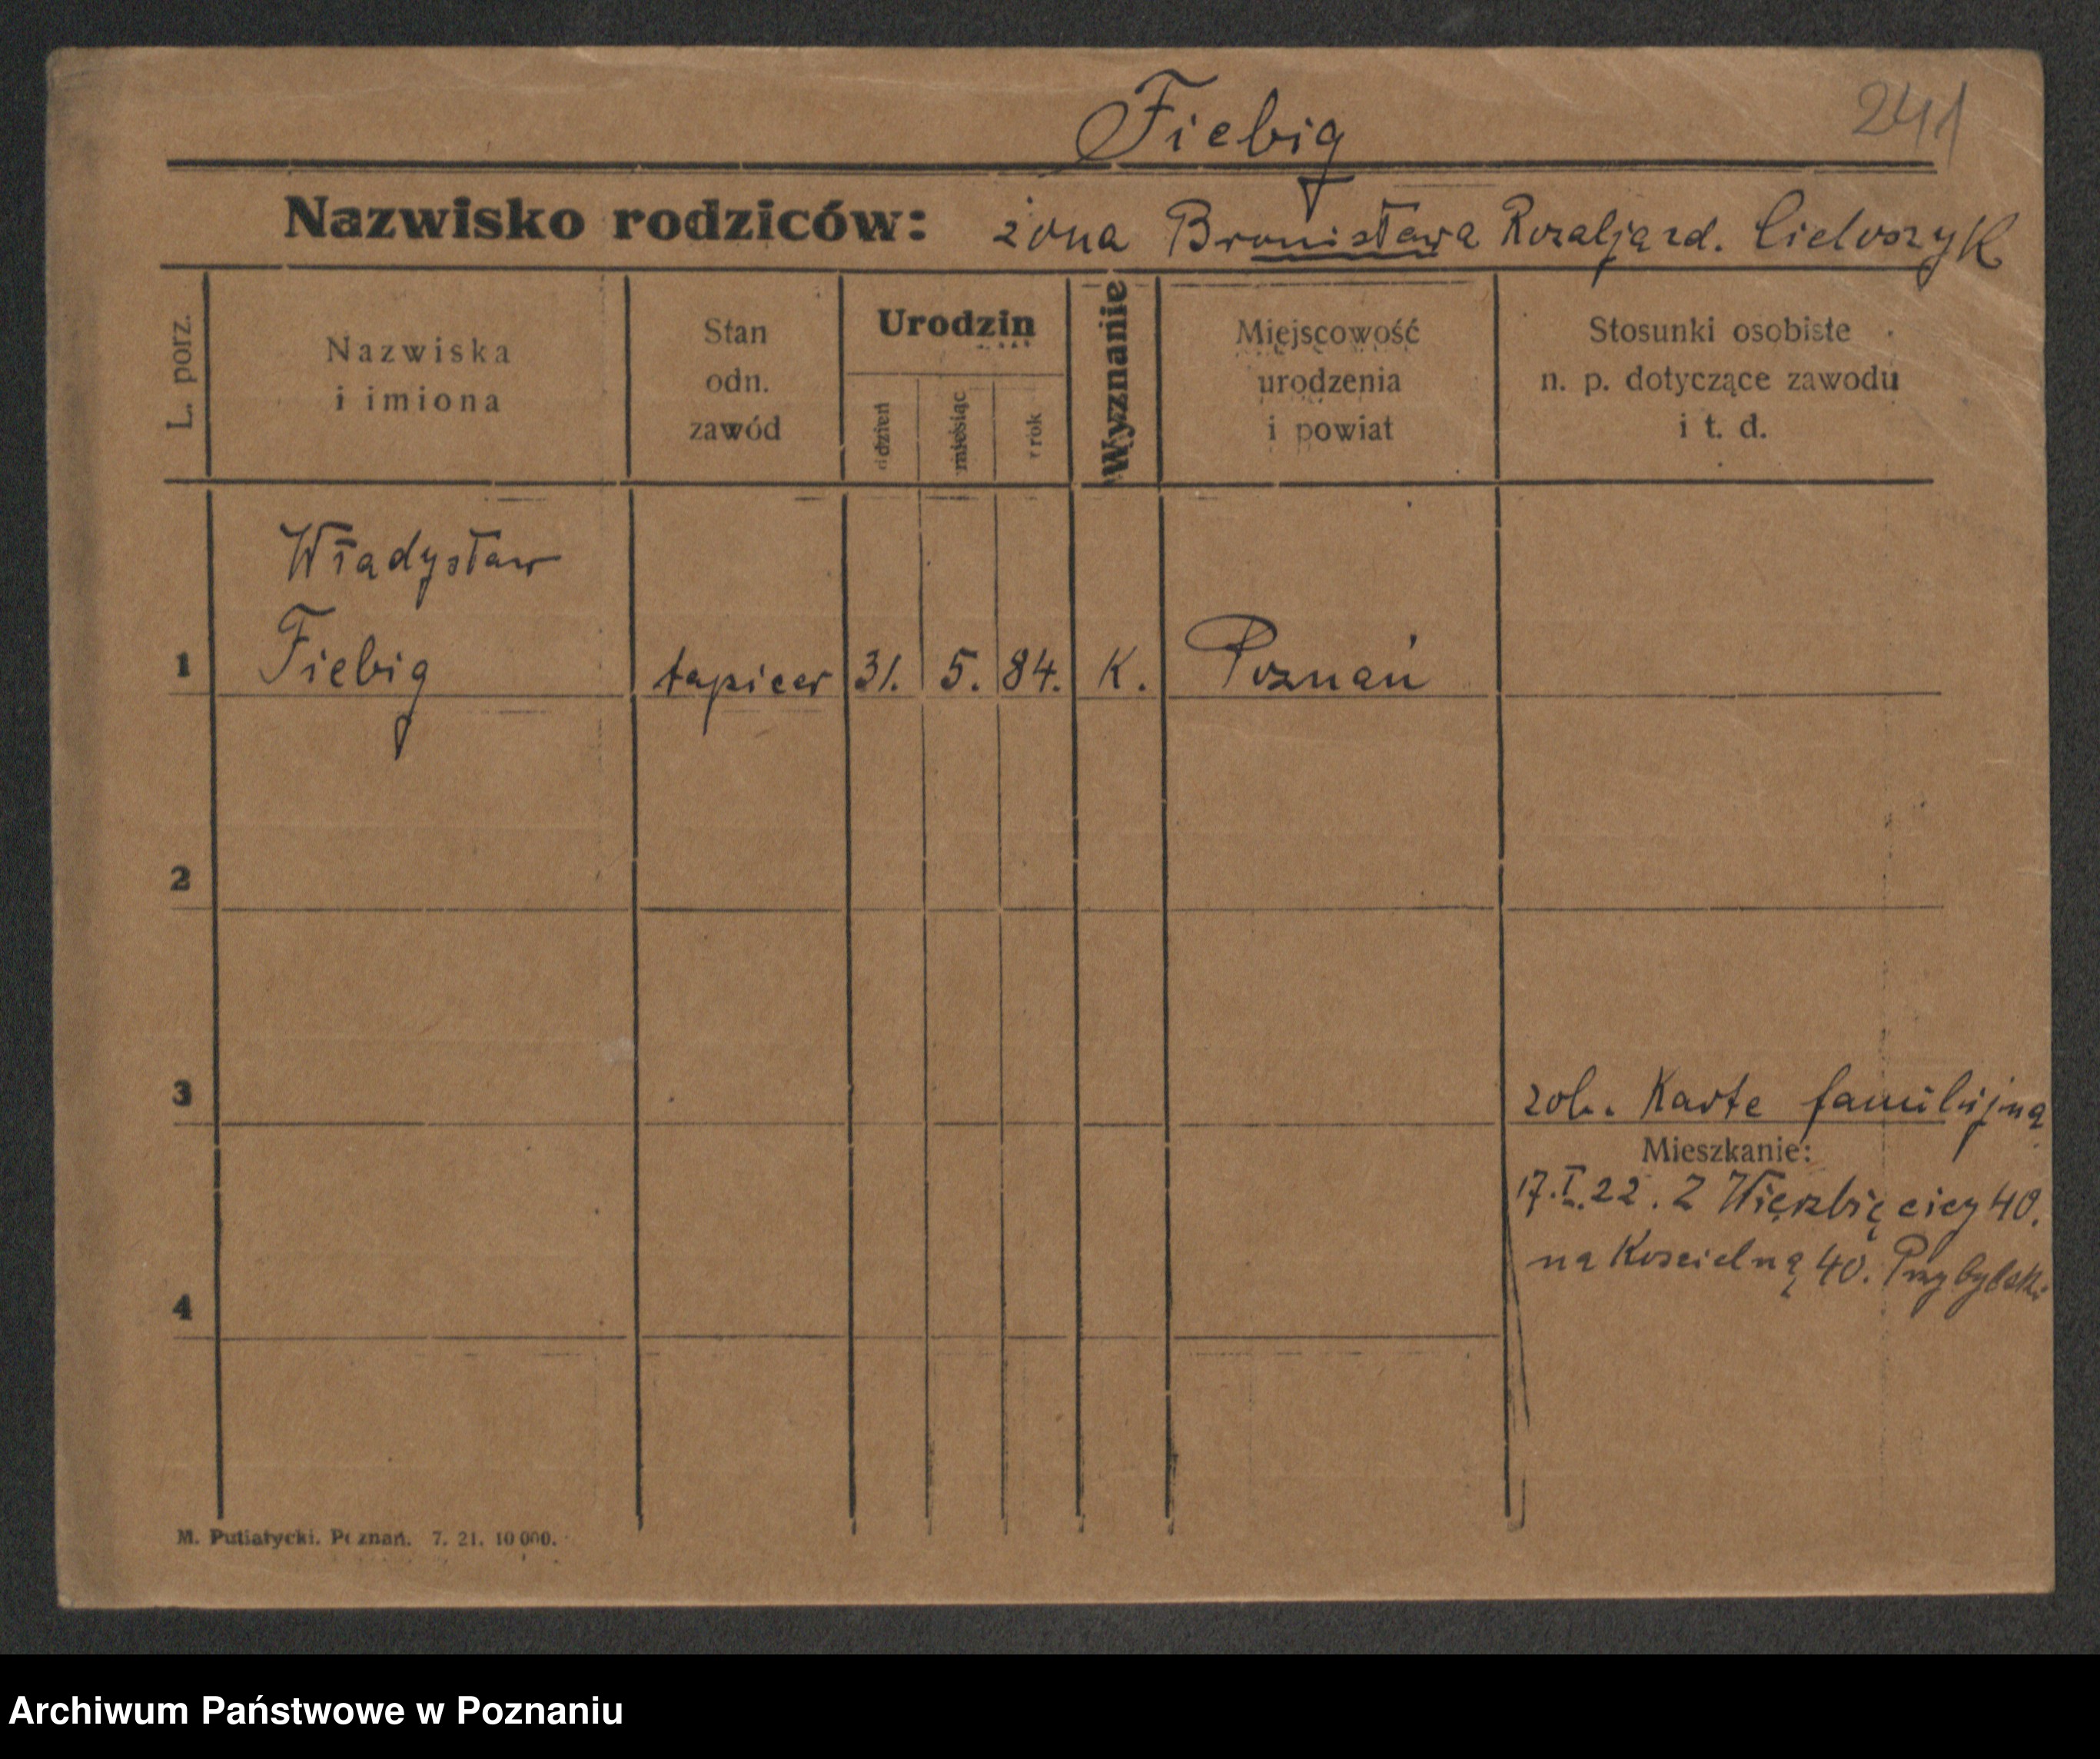 Fiebig
241
Nazwisko rodziców: żona Bronisława Rozalja zd.
L. porz.
Nazwiska
i imiona
Stan
odn.
zawód
Urodzin
dzień
miesiąc
rok
Wyznanie
Miejscowość
urodzenia
i powiat
Stosunki osobiste
n. p. dotyczące zawodu
i t. d.
Władysław
1 Fiebig tapicer 31. 5. 84. K. Poznań
2
3
zob. Karte familijną
Mieszkanie:
17.I.22. Z Wierzbięcicy 40.
na Kościelną 40. Przybylski
4
M. Putiatycki. Poznań. 7. 21. 10 000.
Archiwum Państwowe w Poznaniu